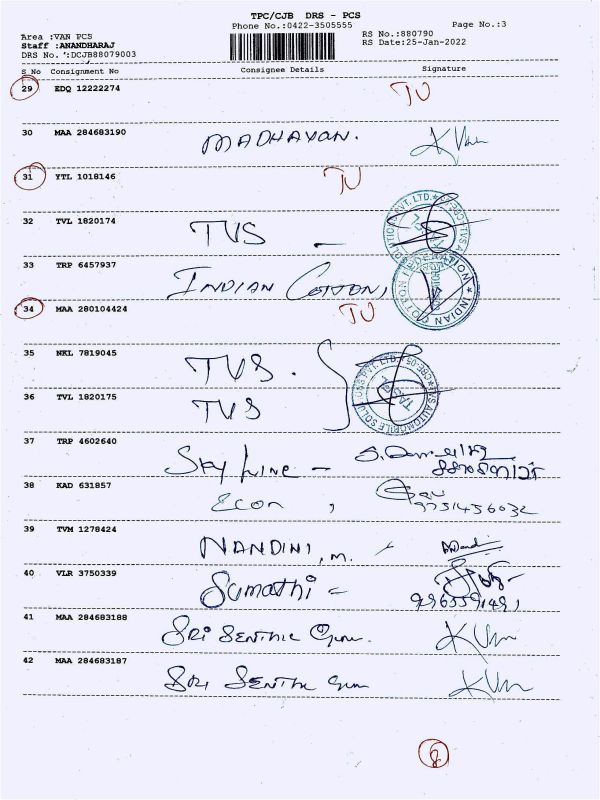 TPC/CJB DRS - PCS
Phone No.:0422-3505555 Page No.:3
Area :VAN PCS RS No.:880790
Staff :ANANDHARAJ RS Date:25-Jan-2022
DRS No. :DCJB88079003
S No Consignment No Consignee Details Signature
29 EDQ 12222274 TU
30 MAA 284683190 MADHAVAN.
31 YTL 1018146 TU
32 TVL 1820174 TVS -
33 TRP 6457937 INDIAN COTTON,
INDIAN COTTON FEDERATION
34 MAA 280104424 TU
35 NKL 7819045 TVS.
36 TVL 1820175 TVS
TVS AUTOMOBILE SOLUTIONS PVT. LTD. CBE-05
37 TRP 4602640 Sky Line -
38 KAD 631857 Econ , 9751456032
39 TVM 1278424 NANDINI, M.
40 VLR 3750339 Sumathi =
41 MAA 284683188 SRI SENTHIL Gum.
42 MAA 284683187 SRI SENTHIL Gum
8